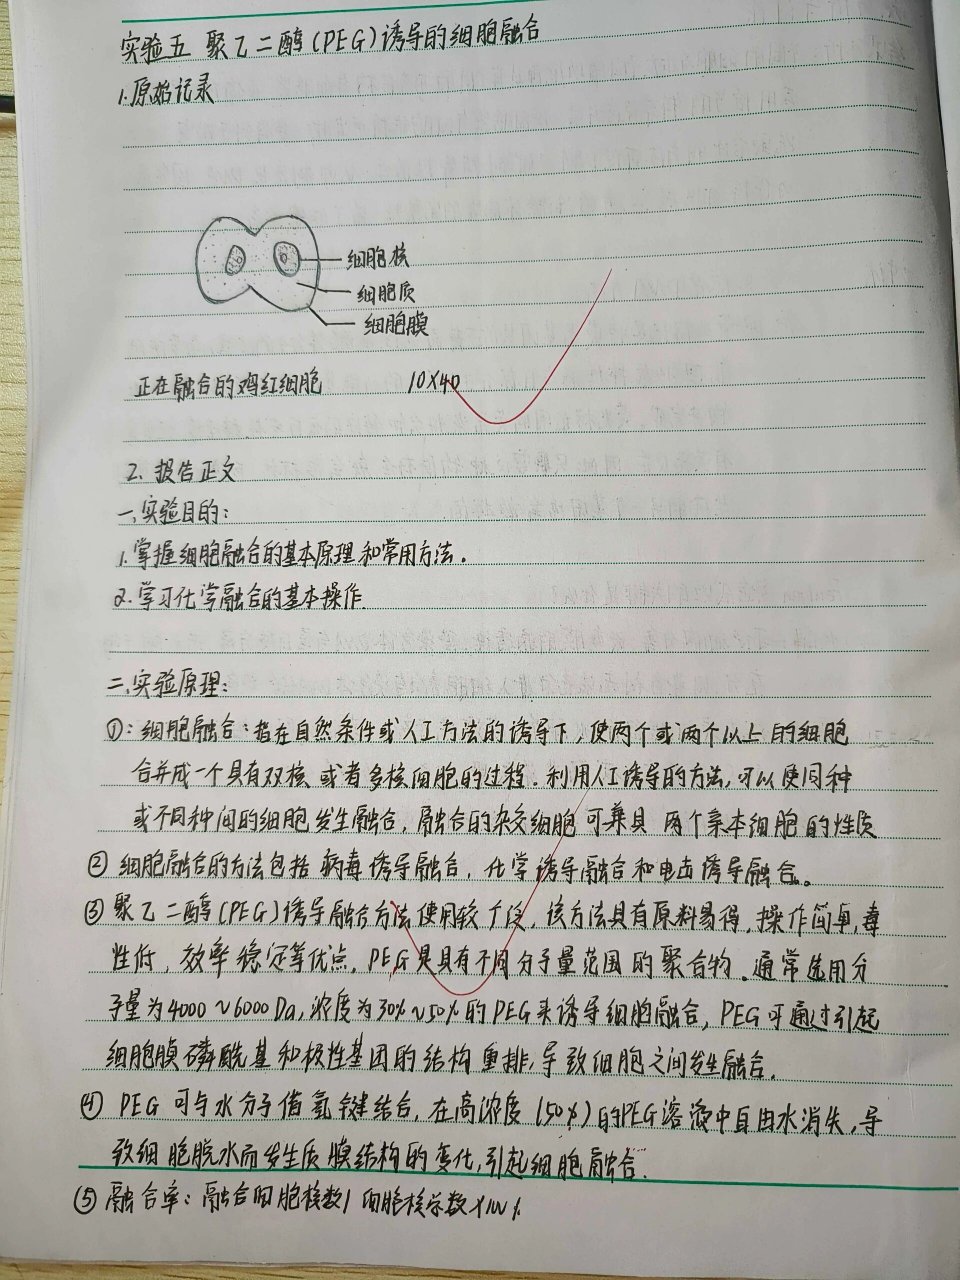 实验五 聚乙二醇(PEG)诱导的细胞融合
1.原始记录
细胞核
细胞质
细胞膜
正在融合的鸡红细胞 10×40
2. 报告正文
一.实验目的:
1.掌握细胞融合的基本原理和常用方法.
2.学习化学融合的基本操作.
二.实验原理:
①:细胞融合:指在自然条件或人工方法的诱导下,使两个或两个以上的细胞
合并成一个具有双核或者多核细胞的过程.利用人工诱导的方法,可以使同种
或不同种间的细胞发生融合,融合的杂交细胞可兼具两个亲本细胞的性质
② 细胞融合的方法包括病毒诱导融合,化学诱导融合和电击诱导融合。
③ 聚乙二醇(PEG)诱导融合方法使用较广泛,该方法具有原料易得,操作简单,毒
性低,效率稳定等优点.PEG是具有不同分子量范围的聚合物.通常选用分
子量为4000~6000Da,浓度为30%~50%的PEG来诱导细胞融合,PEG可通过引起
细胞膜磷酰基和极性基团的结构重排,导致细胞之间发生融合.
④ PEG可与水分子借氢键结合,在高浓度(50%)的PEG溶液中自由水消失,导
致细胞脱水而发生质膜结构的变化,引起细胞融合.
⑤ 融合率:融合的细胞核数/细胞核总数×100%